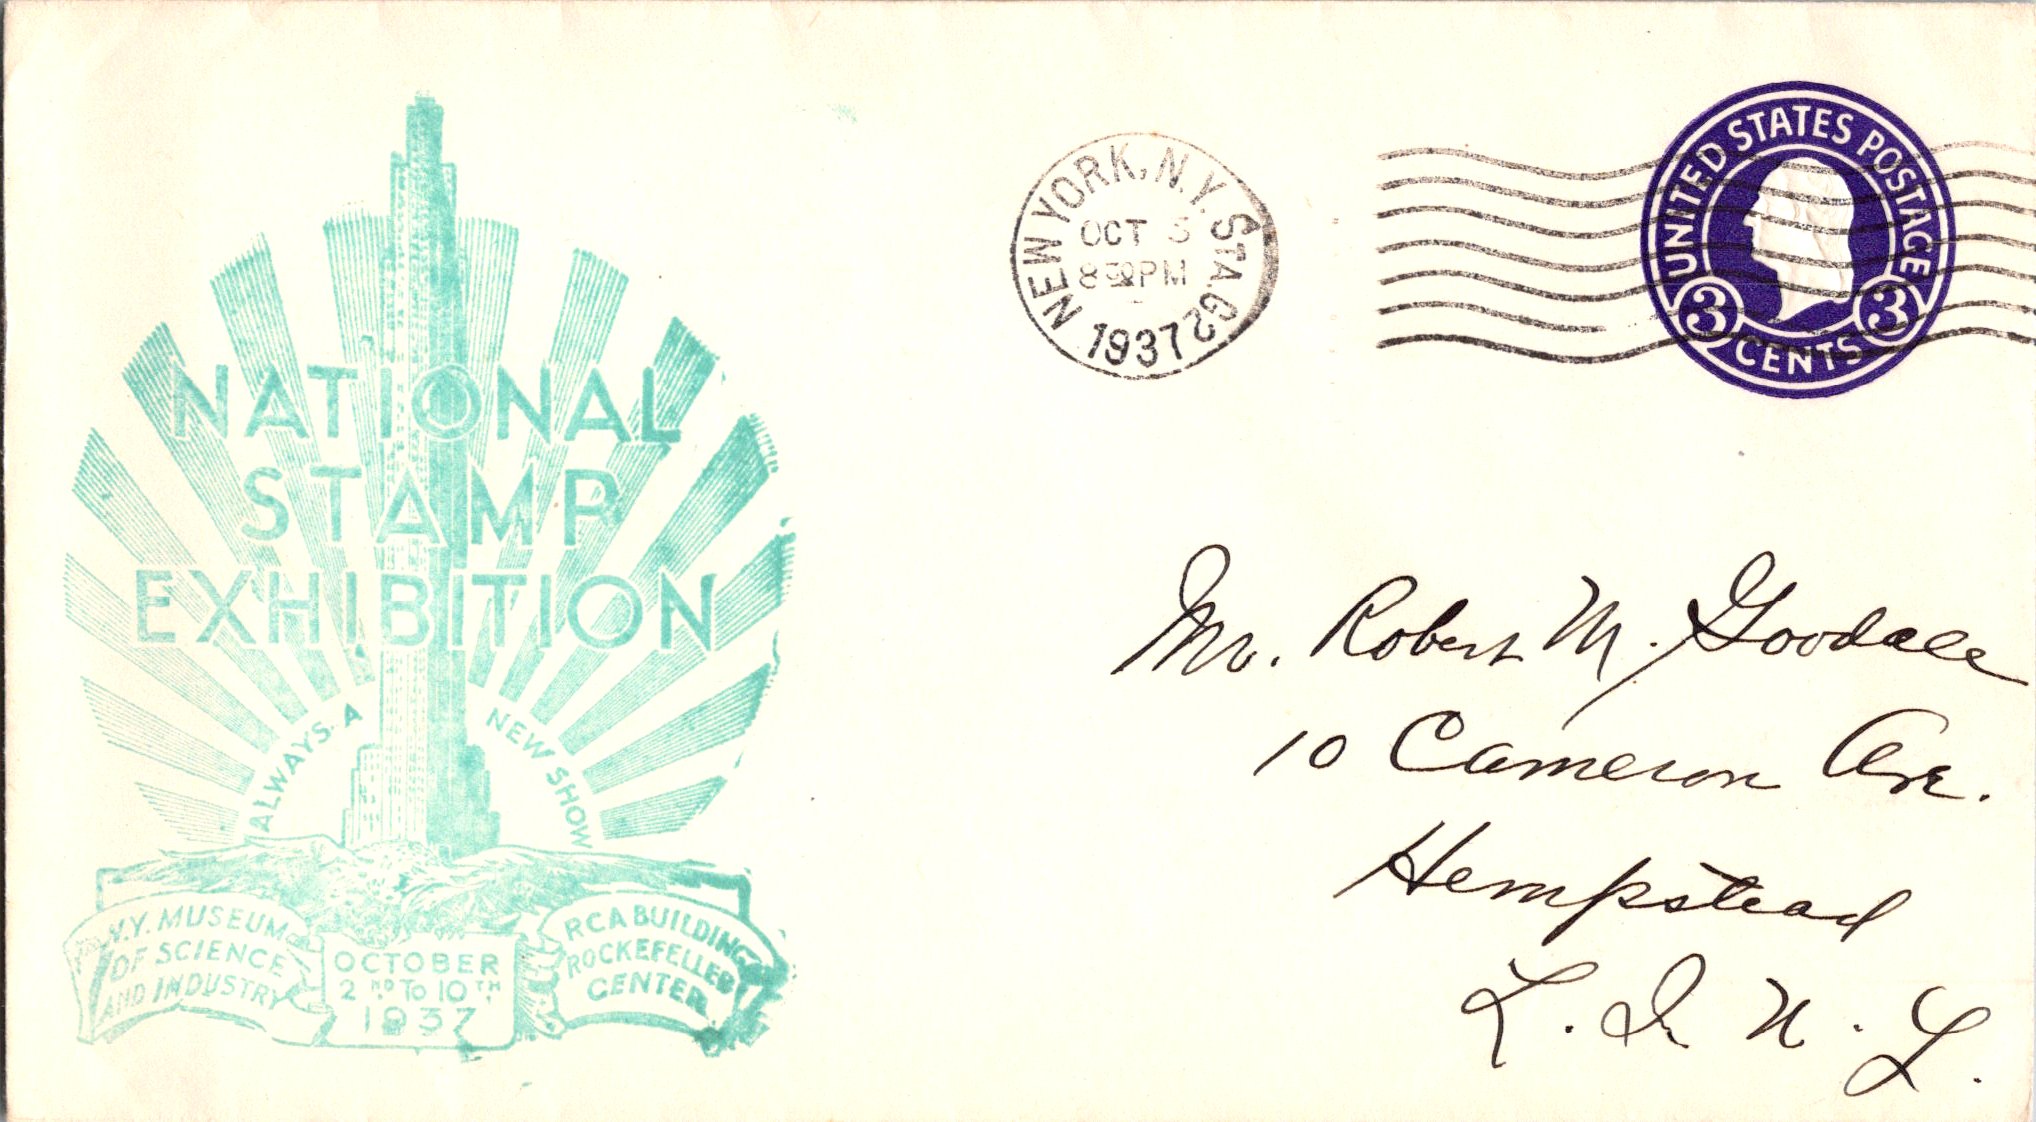 NATIONAL
STAMP
EXHIBITION
ALWAYS A NEW SHOW
N.Y. MUSEUM
OF SCIENCE
AND INDUSTRY
OCTOBER
2ND TO 10TH
1937
RCA BUILDING
ROCKEFELLER
CENTER
NEW YORK, N.Y. STA. G
OCT 5
PM
1937
2
UNITED STATES POSTAGE
3 3
CENTS
Mr. Robert M. Goodale
10 Cameron Ave.
Hempstead
L. I. N. Y.